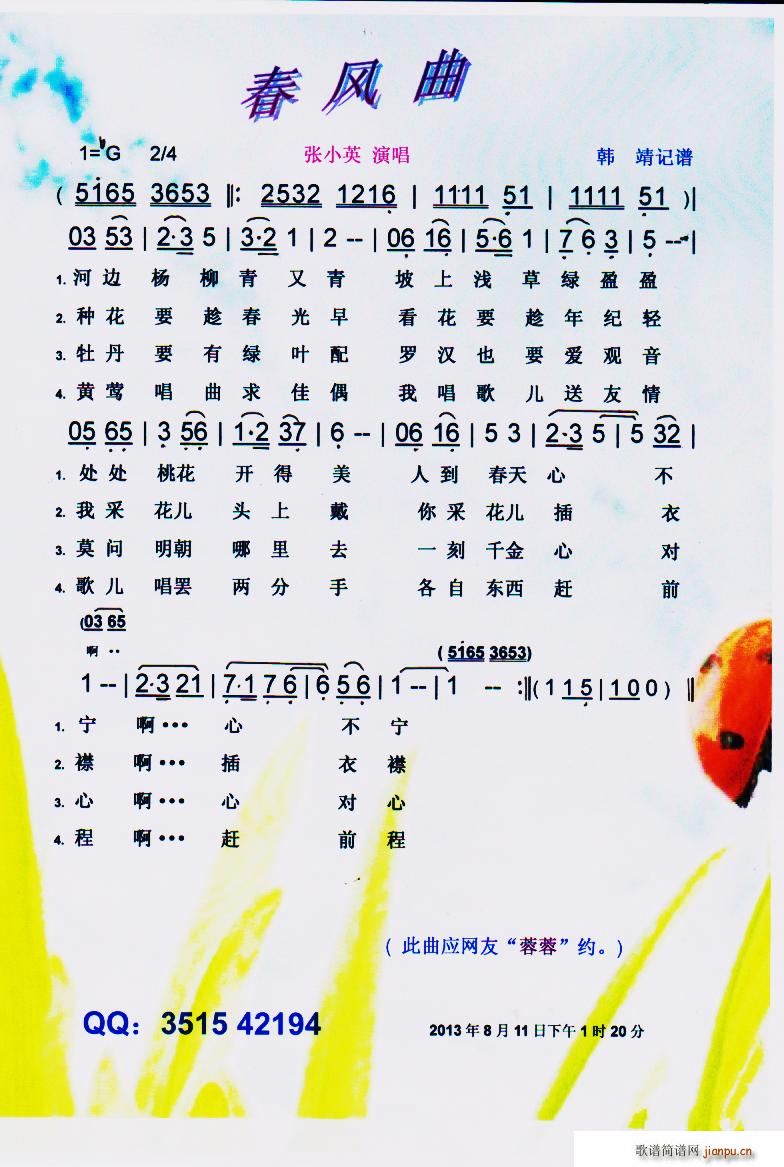 春风曲
1=♭G 2/4 张小英 演唱 韩 靖记谱
( 5165 3653 ‖: 2532 1216 | 1111 51 | 1111 51 )|
03 53 | 2·3 5 | 3·2 1 | 2 -- | 06 16 | 5·6 1 | 7 6 3 | 5 -- |
1. 河边 杨柳青又青 坡上浅草绿盈盈
2. 种花要趁春光早 看花要趁年纪轻
3. 牡丹要有绿叶配 罗汉也要爱观音
4. 黄莺唱曲求佳偶 我唱歌儿送友情
05 65 | 3 56 | 1·2 37 | 6 -- | 06 16 | 5 3 | 2·3 5 | 5 32 |
1. 处处 桃花 开得美 人到 春天心 不
2. 我采 花儿 头上戴 你采 花儿插 衣
3. 莫问 明朝 哪里去 一刻 千金心 对
4. 歌儿 唱罢 两分手 各自 东西赶 前
(03 65
啊 ··
( 5165 3653)
1 -- | 2·3 21 | 7·1 76 | 6 56 | 1 -- | 1 -- :‖( 1 15 | 100 ) ‖
1. 宁 啊··· 心 不宁
2. 襟 啊··· 插 衣襟
3. 心 啊··· 心 对心
4. 程 啊··· 赶 前程
( 此曲应网友“蓉蓉”约。)
QQ：3515 42194
2013 年 8 月 11 日下午 1 时 20 分
歌谱简谱网 jianpu.cn